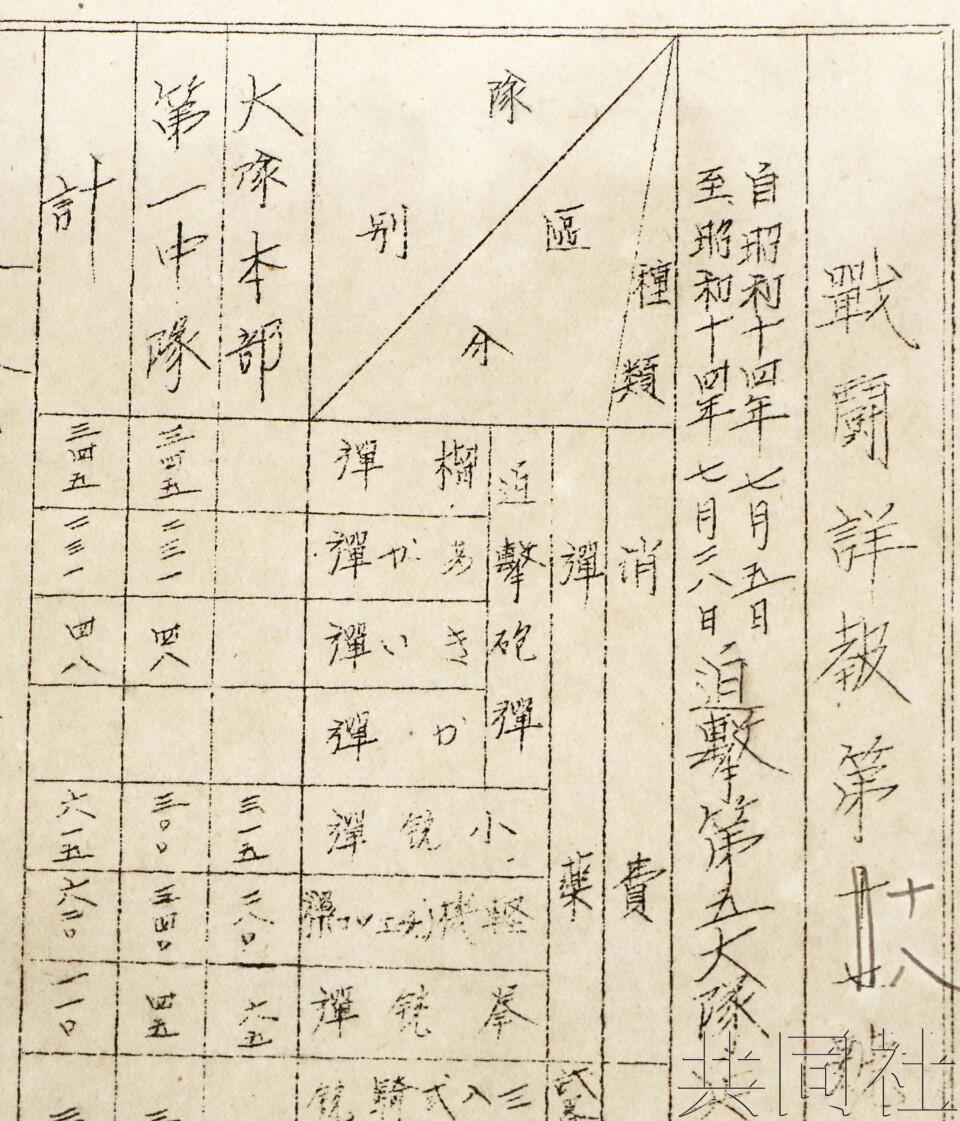 戰鬪詳報第十八
自昭和十四年七月五日
至昭和十四年七月二八日
迫擊第五大隊
種類
區分
隊別
消費
彈藥
迫擊砲彈
榴彈
あか彈
きい彈
か彈
小銃彈
輕機
拳銃彈
三八式騎銃
大隊本部
三一五
二八〇
六五
第一中隊
三四五
二三一
四八
三〇〇
三四〇
四五
計
三四五
二三一
四八
六一五
六二〇
一一〇
共同社